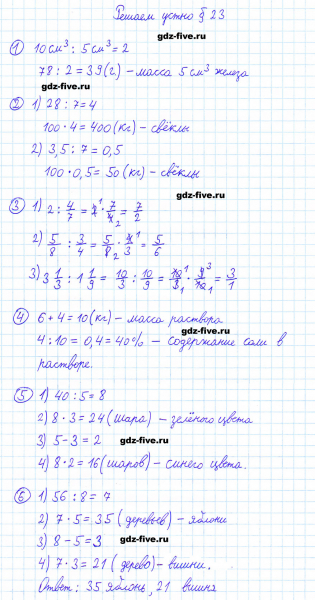 Решаем устно § 23
gdz-five.ru
1 10 см³ : 5 см³ = 2
78 : 2 = 39 (г) – масса 5 см³ железа
gdz-five.ru
2 1) 28 : 7 = 4
100 · 4 = 400 (кг) – свёклы
2) 3,5 : 7 = 0,5
100 · 0,5 = 50 (кг) – свёклы
gdz-five.ru
3 1) 2 : 4/7 = 2¹ · 7/4₂ = 7/2
2) 5/8 : 3/4 = 5/8₂ · 4¹/3 = 5/6
3) 3 1/3 : 1 1/9 = 10/3 : 10/9 = 10¹/3₁ · 9³/10₁ = 3/1
4 6 + 4 = 10 (кг) – масса раствора
gdz-five.ru
4 : 10 = 0,4 = 40% – содержание соли в
растворе.
5 1) 40 : 5 = 8
2) 8 · 3 = 24 (шара) – зелёного цвета
3) 5 – 3 = 2 gdz-five.ru
4) 8 · 2 = 16 (шаров) – синего цвета.
6 1) 56 : 8 = 7
2) 7 · 5 = 35 (деревьев) – яблони
3) 8 – 5 = 3 gdz-five.ru
4) 7 · 3 = 21 (дерево) – вишни.
Ответ: 35 яблонь, 21 вишня